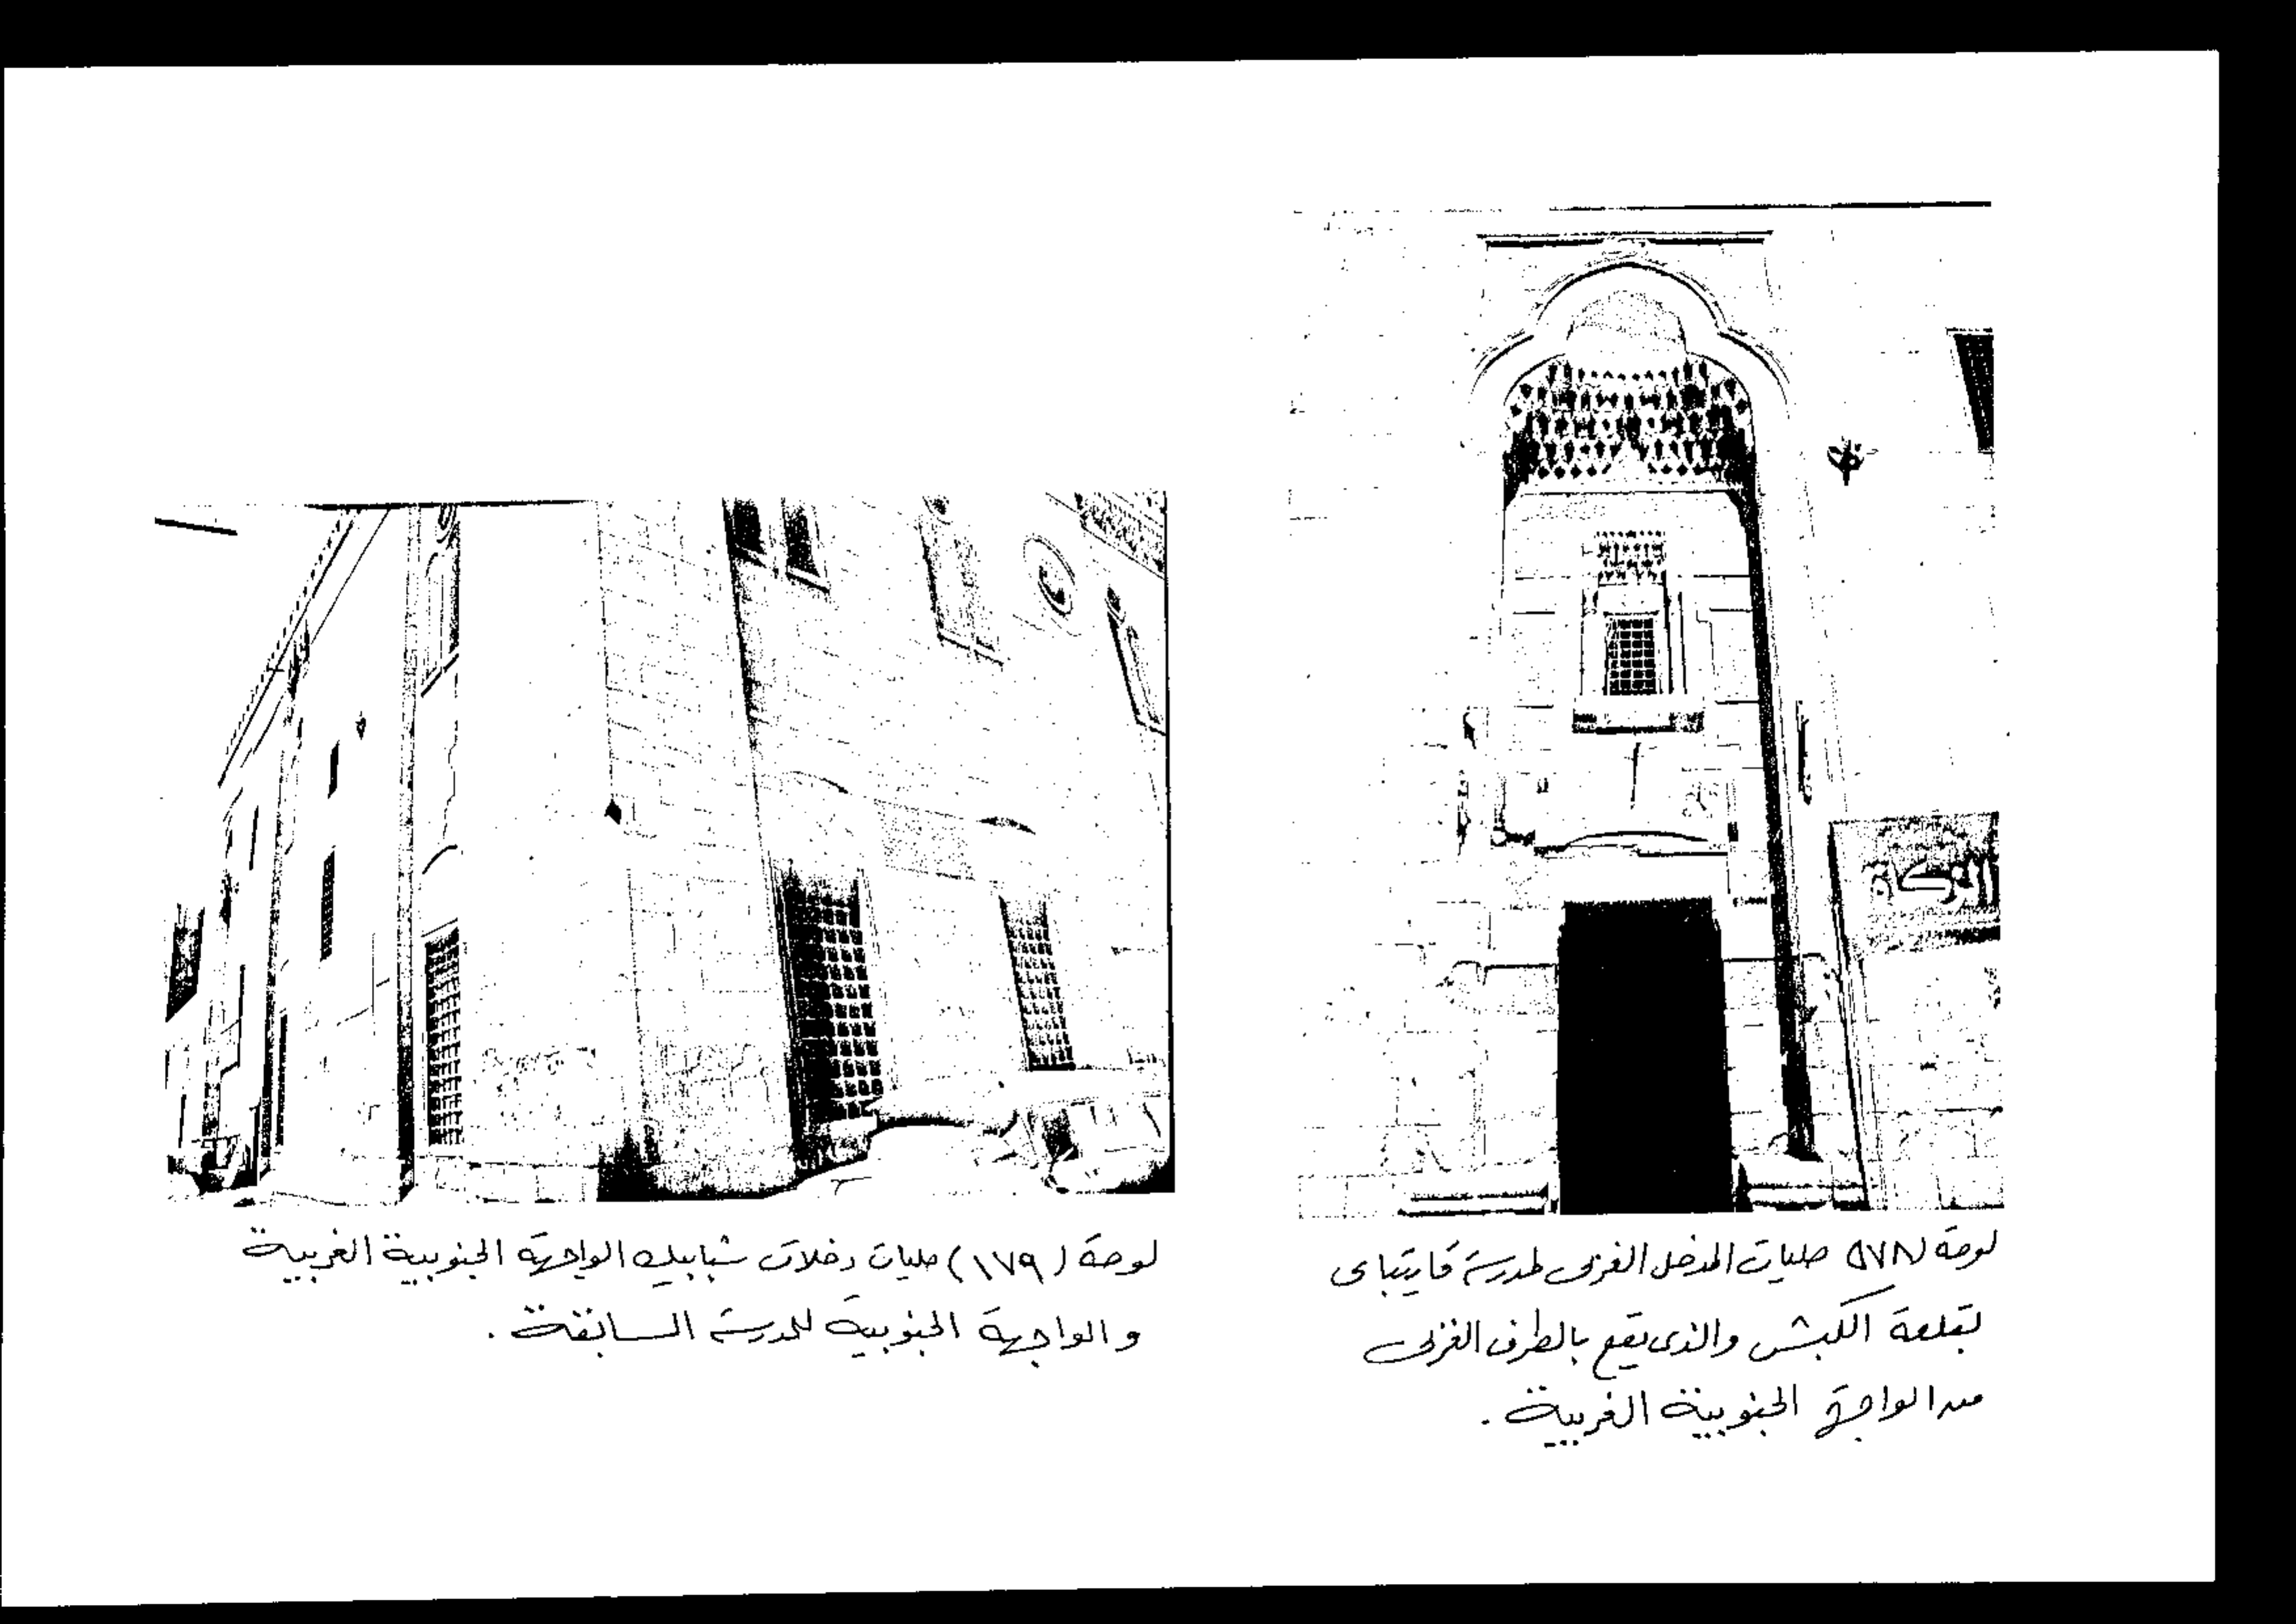 لوحة (١٧٨) حليات المدخل الغربى لمدرسة قايتباى
بقلعة الكبش والذى يقع بالطرف الغربى
من الواجهة الجنوبية الغربية .
لوحة (١٧٩) حليات دخلات شبابيك الواجهة الجنوبية الغربية
و الواجهة الجنوبية للمدرسة السابقة .